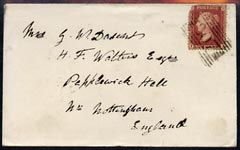 Mrs G. W. Dasent
H. F. Walters Esqre
Papplewick Hall
Nr Nottingham
England
POSTAGE